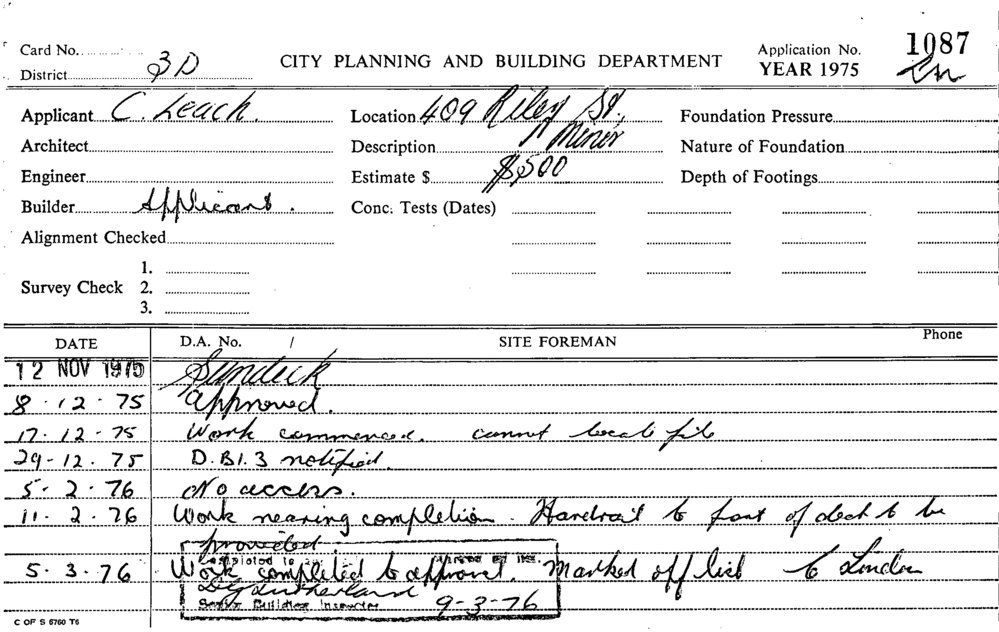 Card No.
District 3D
CITY PLANNING AND BUILDING DEPARTMENT
Application No. 1087
YEAR 1975
Applicant C. Leach.
Location 409 Riley St.,
Foundation Pressure
Architect
Description Minor
Nature of Foundation
Engineer
Estimate $ $500
Depth of Footings
Builder Applicant.
Conc. Tests (Dates)
Alignment Checked
Survey Check
1.
2.
3.
DATE D.A. No. / SITE FOREMAN Phone
12 NOV 1975 Sundeck
8-12-75 Approved.
17-12-75 Work commenced. cannot locate file
29-12-75 D.B1.3 notified.
5-2-76 No access.
11-2-76 Work nearing completion. Handrail to front of deck to be
provided.
5.3.76 Work completed to approval. Marked off list
Senior Building Inspector 9-3-76
C OF S 6760 T6